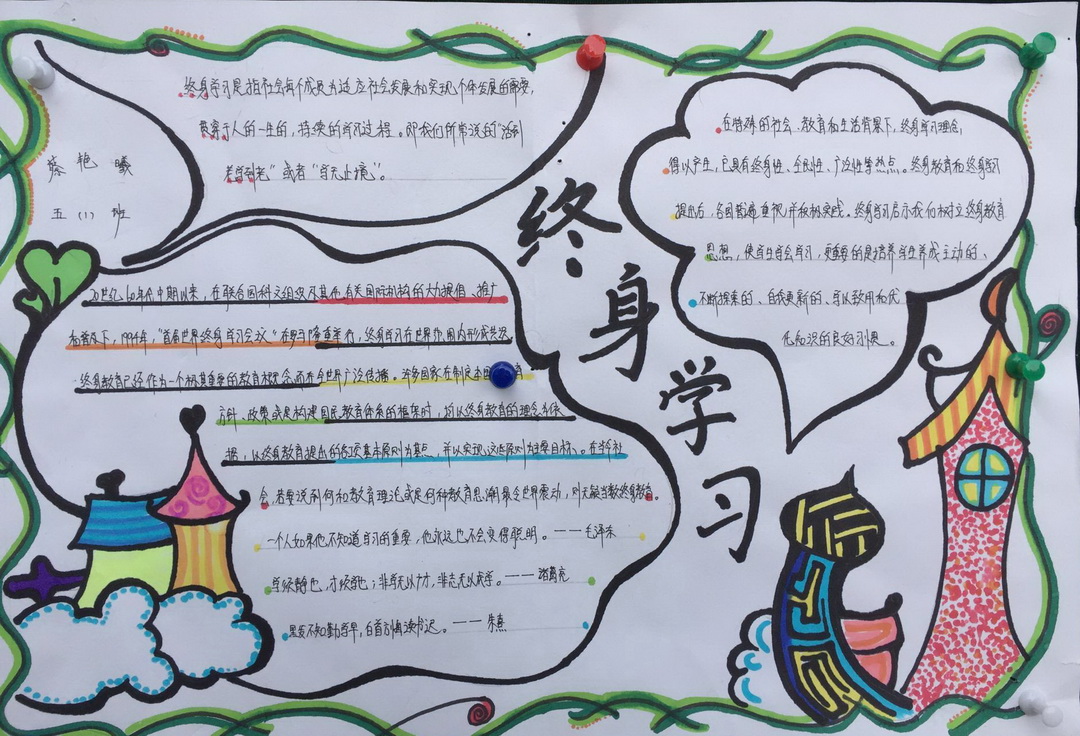 蔡艳曦
五(1)班
终身学习是指社会每个成员为适应社会发展和实现个体发展的需要,
贯穿于人的一生的,持续的学习过程。即我们所常说的“活到
老学到老”或者“学无止境”。
终身学习
在特殊的社会、教育和生活背景下,终身学习理念,
得以产生,它具有终身性、全民性、广泛性等特点。终身教育和终身学习
提出后,各国普遍重视并积极实践。终身学习启示我们树立终身教育
思想,使学生学会学习,更重要的是培养学生养成主动的、
不断探索的、自我更新的、学以致用和优
化知识的良好习惯。
20世纪60年代中期以来,在联合国科文组织及其他有关国际机构的大力提倡、推广
和普及下,1994年,“首届世界终身学习会议”在罗马隆重举行,终身学习在世界范围内形成共识
终身教育已经作为一个极其重要的教育概念而在全世界广泛传播,许多国家在制定本国
方针、政策或是构建国民教育体系的框架时,均以终身教育的理念为依
据,以终身教育提出的各项基本原则为基点,并以实现这些原则为主要目标。在当今社
会,若要说到何和教育理论或是何种教育思潮最令世界震动,则无疑当数终身教育。
一个人如果他不知道学习的重要,他永远也不会变得聪明。——毛泽东
学须静也,才须学也;非学无以广才,非志无以成学。——诸葛亮
黑发不知勤学早,白首方悔读书迟。——朱熹